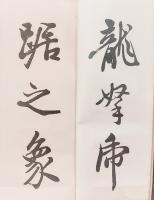 龍拏虎
踞之象